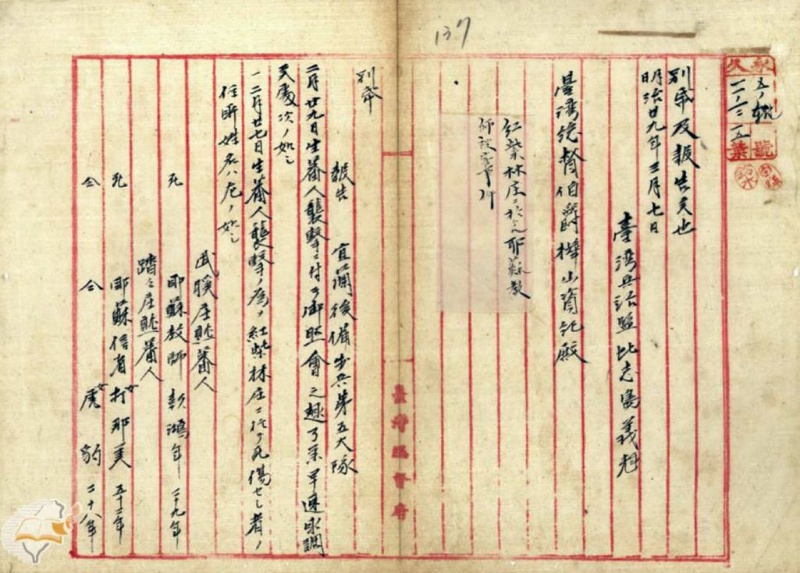 137
永久
號
五ノ
別紙及報告候也
明治廿九年三月七日
臺湾兵站監比志島義輝
臺湾總督伯爵樺山資紀殿
紅柴林庄ニ於ケル耶蘇教
臺灣總督府
別紙
報告 宜蘭後備歩兵第五大隊
二月廿九日生蕃人襲撃ニ付
御照会之趣了承早速取調
候處次ノ如シ
一二月廿七日生蕃人襲撃ノ為ノ紅柴林庄ニ於テ死傷セシ者ノ
住所姓名ハ左ノ如シ
武暖庄熟蕃人
死 耶蘇教師 鴻年 二十九年
踏々庄熟蕃人
死 耶蘇信者 女 打那美 五十二年
仝 仝 虎豹 二十八年